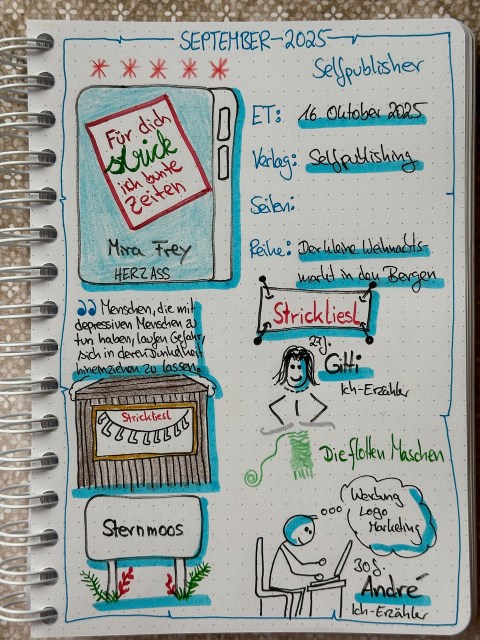 SEPTEMBER-2025
Selfpublisher
Für dich
strick
ich bunte
Zeiten
Mira Frey
HERZASS
ET: 16. Oktober 2025
Verlag: Selfpublishing
Seiten:
Reihe: Der kleine Weihnachts-
markt in den Bergen
Menschen, die mit
depressiven Menschen zu
tun haben, laufen Gefahr,
sich in deren Dunkelheit
hineinziehen zu lassen.
Strickliesl
Strickliesl
27J.
Gitti
Ich-Erzähler
Die flotten Maschen
Sternmoos
Werbung
Logo
Marketing
30J.
André
Ich-Erzähler